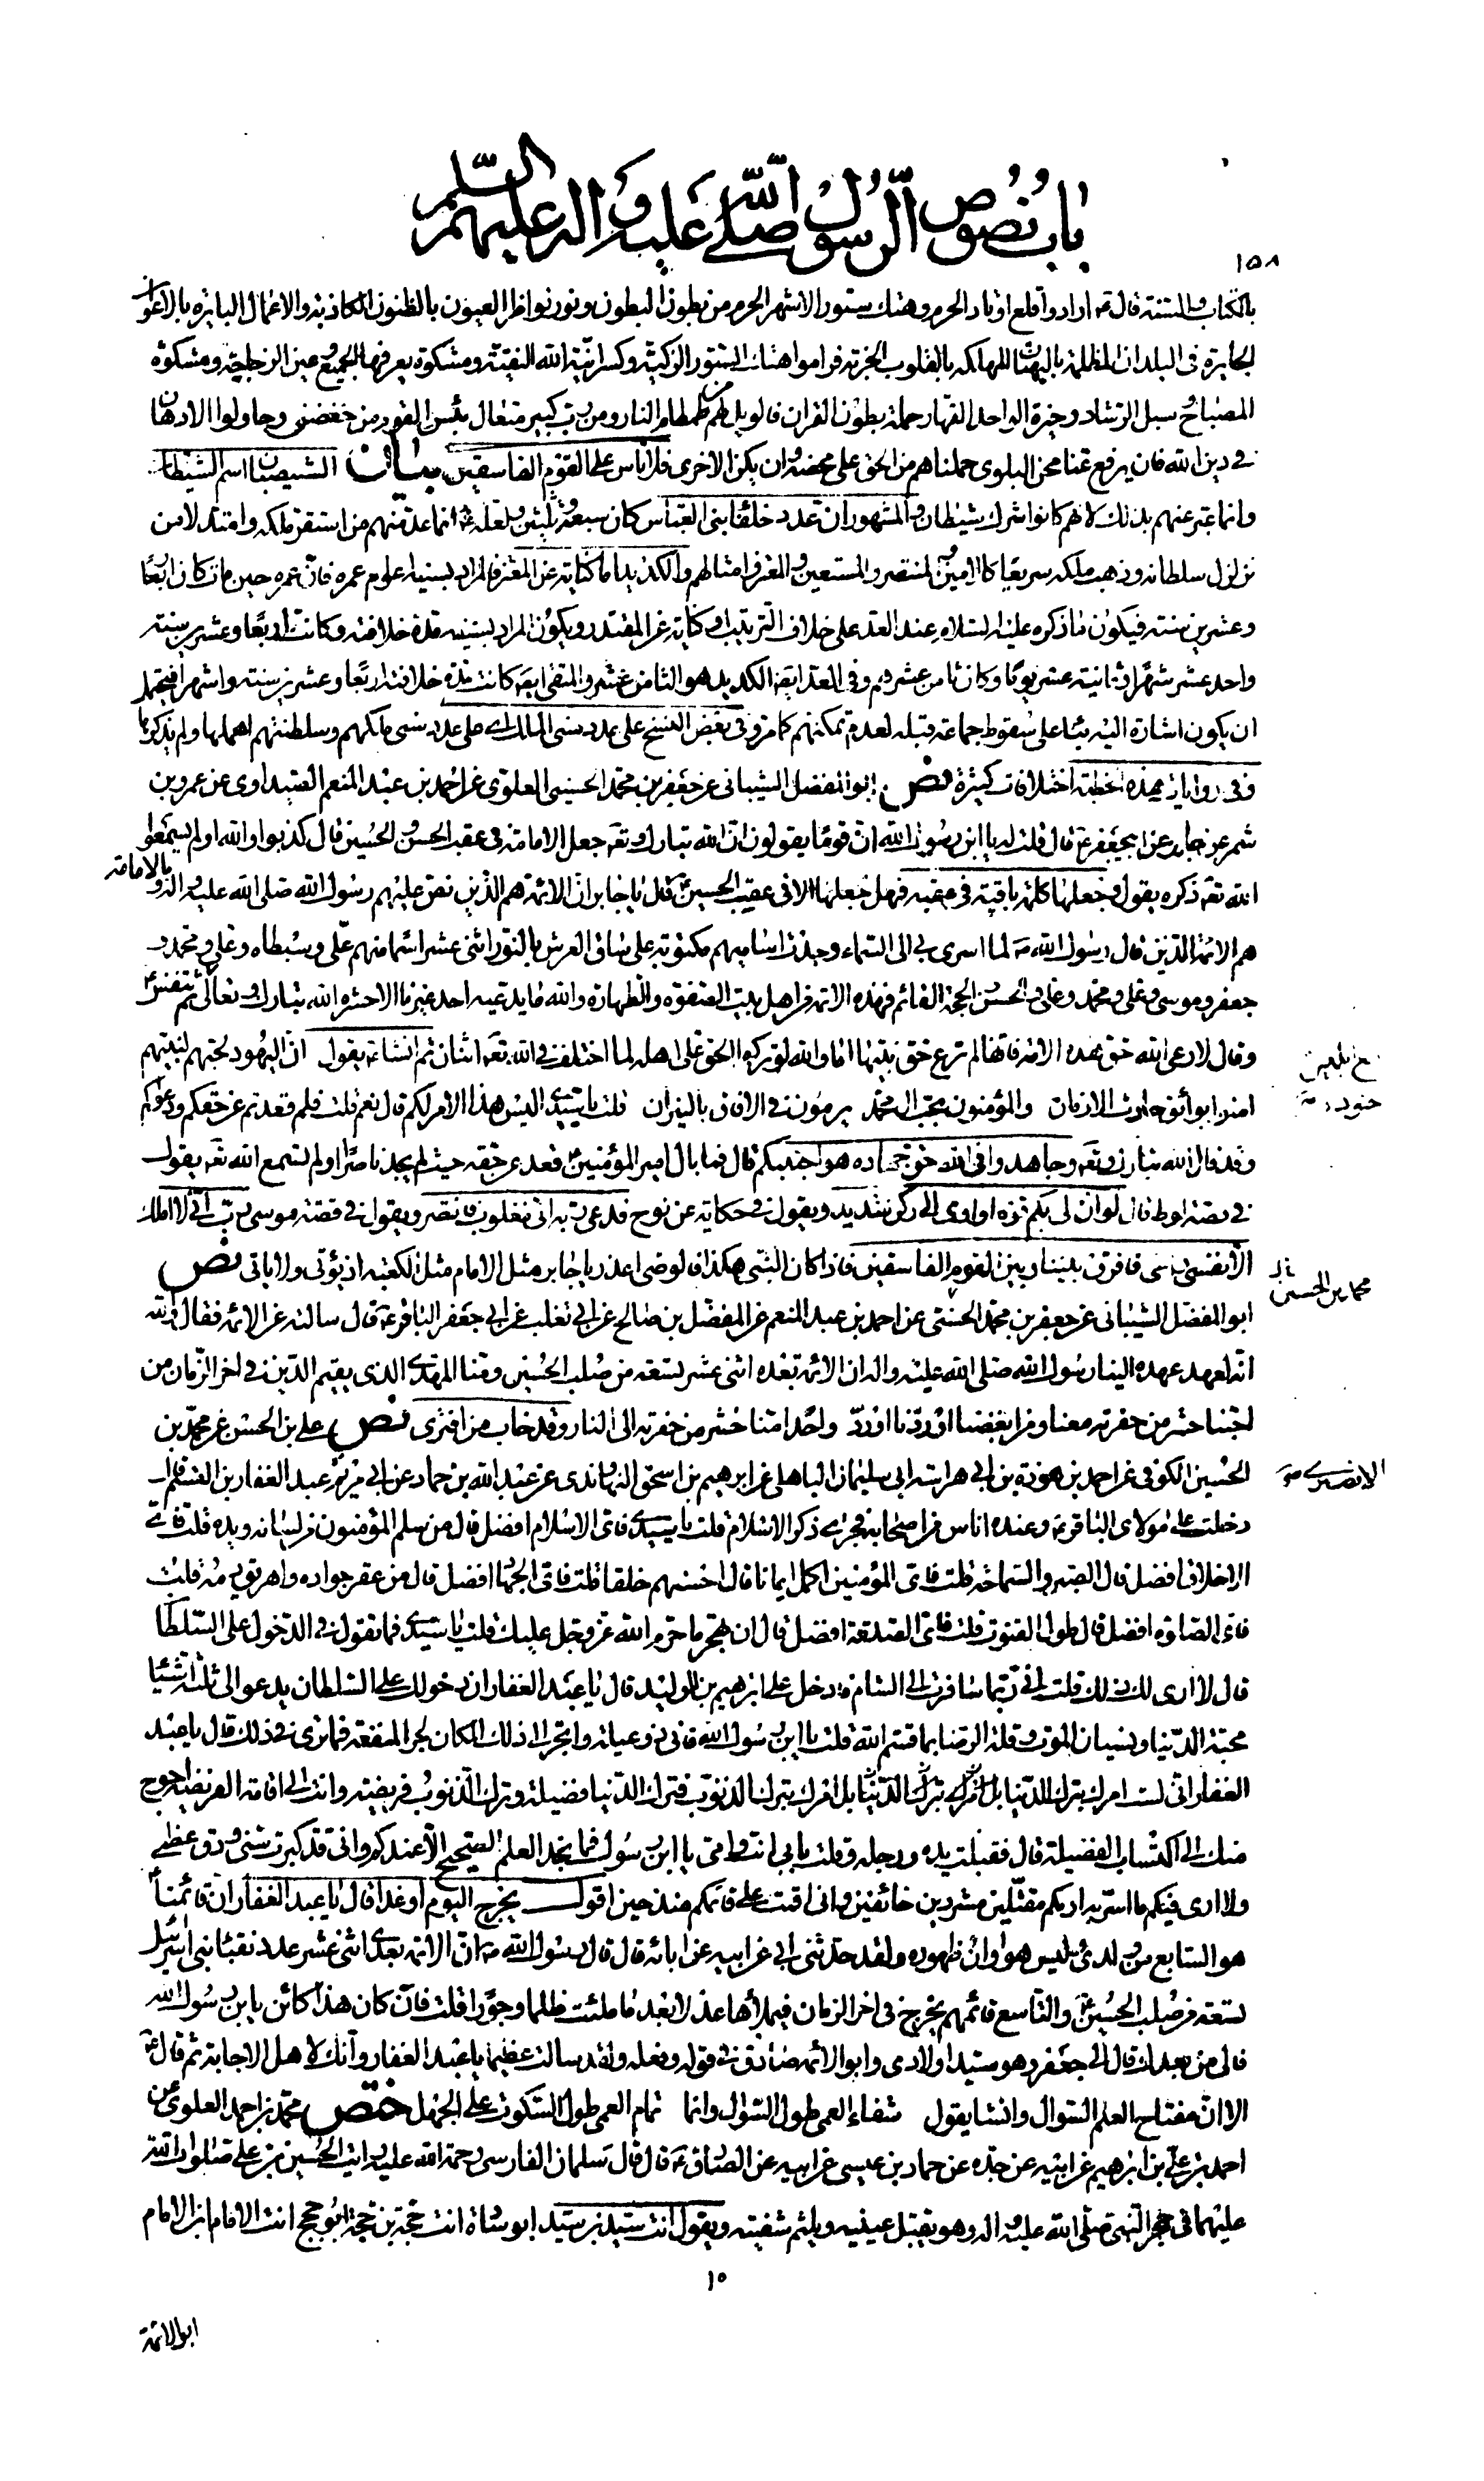 باب نصوص الرسول صلى الله عليه و اله عليهم السلم
١٥٨
بالكتاب والسنة قال ثم ارادوا قلع اوتاد الحرم وهتك ستور الاشهر الحرم من بطون البطون ونور نواظر العيون بالظنون الكاذبة والاعمال البائرة بالاعوان
الجايرة فى البلدان المظلمة بالبهتان المهلكة بالقلوب الخربة فراموا هتك الستور الزكية وكسر انية الله النقية ومشكوة يعرفها الجميع وعين الزجاجة ومشكوة
المصباح وسبل الرشاد وخيرة الواحد القهار حملة بطون القران فالويل لهم من طمطام النار ومن رب كبير متعال بئس القوم من خفضنى وحاولوا الادهان
فى دين الله فان يرفع عنا محن البلوى حملناهم من الحق على محضه وان يكن الاخرى فلا تاس على القوم الفاسقين بيان الشيصبان اسم الشيطان
وانما عبر عنهم بذلك لانهم كانوا شرك شيطان والمشهور ان عدد خلفاء بنى العباس كان سبعة وثلثين ولعله ع انما عد منهم من استقر ملكه وامتد لا من
تزلزل سلطانه وذهب ملكه سريعا كالامين والمنتصر والمستعين والمعتز وامثالهم والكديد اما كناية عن المعتز فالمراد بسنيه اعلوام عمره فان عمره حين مات كان اربعا
وعشرين سنة فيكون ما ذكره عليه السلام عند العد على خلاف الترتيب او كناية عن المقتدر ويكون المراد بسنيه مدة خلافته وكانت اربعا وعشرين سنة
واحد عشر شهرا وثمانية عشر يوما وكان ثامن عشرهم وفى العد ايضا الكديد هو الثامن عشر والمتقى ايضا كانت مدة خلافته اربعا وعشرين سنة واشهر افيحتمل
ان يكون اشارة اليه بناء على سقوط جماعة قبله لعدم تمكنهم كما مر وفى بعض النسخ على عدد سنى الملك اى على عدد سنى ملكهم وسلطنتهم اهملها ولم يذكرها
وفى روايات هذه الخطبة اختلافات كثيرة نص ابو المفضل الشيبانى عن جعفر بن محمد الحسينى العلوى عن احمد بن عبد المنعم الصيداوى عن عمرو بن
شمر عن جابر عن ابى جعفر ع قال قلت له يا ابن رسول الله ان قوما يقولون ان الله تبارك وتعه جعل الامامة فى عقب الحسن والحسين قال كذبوا والله اولم يسمعوا
الله تعه ذكره يقول وجعلها كلمة باقية فى عقبه فهل جعلها الا فى عقب الحسين ع ثم قال يا جابر ان الائمة هم الذين نص عليهم رسول الله صلى الله عليه واله بالامامة
هم الائمة الذين قال رسول الله ص لما اسرى بى الى السماء وجدت اساميهم مكتوبة على ساق العرش بالنور اثنى عشر اسما منهم على وسبطاه وعلى ومحمد و
جعفر وموسى وعلى ومحمد وعلى والحسن والحجة القائم فهذه الائمة من اهل بيت الصفوة والطهارة والله ما يدعيه احد غيرنا الا حشره الله تبارك وتعالى ثم تنفس ع
وقال لا رعى الله حق هذه الامة فانها لم ترع حق نبيها اما والله لو تركوا الحق على اهله لما اختلف فى الله تعه اثنان ثم انشاء يقول ان اليهود لحبهم لنبيهم
امنوا بوائق حادث الازمان والمؤمنون بحب ال محمد يرمون فى الافاق بالنيران قلت يا سيدى اليس هذا الامر لكم قال نعم قلت فلم قعدتم عن حقكم ودعواكم
وقد قال الله تبارك وتعه وجاهدوا فى الله حق جهاده هو اجتبيكم قال فما بال امير المؤمنين ع قعد عن حقه حيث لم يجد ناصرا اولم تسمع الله تعه يقول
فى قصة لوط قال لو ان لى بكم قوة او اوى الى ركن شديد ويقول فى حكاية عن نوح فدعى ربه انى مغلوب فانتصر ويقول فى قصة موسى رب انى لا املك
الا نفسى واخى فافرق بيننا وبين القوم الفاسقين فاذا كان النبى هكذا فالوصى اعذر يا جابر مثل الامام مثل الكعبة اذ يؤتى ولا ياتى نص
محمد بن الحسين
ابو المفضل الشيبانى عن جعفر بن محمد الحسنى عن احمد بن عبد المنعم عن المفضل بن صالح عن ابى تغلب عن ابى جعفر الباقر ع قال سالته عن الائمة فقال والله
انه لعهد عهده الينا رسول الله صلى الله عليه واله ان الائمة بعده اثنى عشر تسعة من صلب الحسين ومنا المهدى الذى يقيم الدين فى اخر الزمان من
احبنا حشر من حفرته معنا ومن ابغضنا او ردنا او رد واحدا منا حشر من حفرته الى النار وقد خاب من افترى نص على بن الحسن عن محمد بن
الحسين الكوفى عن احمد بن هوذة بن ابى هراسة ابى سليمان الباهلى عن ابرهيم بن اسحق النهاوندى عن عبد الله بن حماد عن ابى مريم عبد الغفار بن القسم قال
دخلت على مولاى الباقر ع وعنده اناس من اصحابه فجرى ذكر الاسلام قلت يا سيدى فاى الاسلام افضل قال من سلم المؤمنون من لسانه ويده قلت فاى
الاخلاق افضل قال الصبر والسماحة قلت فاى المؤمنين اكمل ايمانا قال احسنهم خلقا قلت فاى الجهاد افضل قال من عقر جواده واهريق دمه قلت
فاى الصلوة افضل قال طول القنوت قلت فاى الصدقة افضل قال ان تهجر ما حرم الله عز وجل عليك قلت يا سيدى فما تقول فى الدخول على السلطان
قال لا ارى لك ذلك قلت انى ربما سافرت الى الشام فادخل على ابرهيم بن الوليد قال يا عبد الغفار ان دخولك على السلطان يدعو الى ثلثة اشياء
محبة الدنيا ونسيان الموت وقلة الرضا بما قسم الله قلت يا ابن رسول الله فانى ذو عيلة واتجر الى ذلك المكان لجر المنفعة فما ترى فى ذلك قال يا عبد
الغفار انى لست امرك بترك الدنيا بل امرك بترك الذنوب فترك الدنيا فضيلة وترك الذنوب فريضة وانت الى اقامة الفريضة احوج
منك الى اكتساب الفضيلة قال فقبلت يده ورجله وقلت بابى انت وامى يا ابن رسول الله فما نجد العلم الصحيح الا عندكم وانى قد كبرت سنى ودق عظمى
ولا ارى فيكم ما اسر به اراكم مقتلين مشردين خائفين وانى اقمت على قائمكم منذ حين اقول يخرج اليوم او غدا قال يا عبد الغفار ان قائمنا ع
هو السابع من ولدى وليس هو اوان ظهوره ولقد حدثنى ابى عن ابيه عن ابائه قال قال رسول الله ص ان الائمة بعدى اثنى عشر عدد نقباء بنى اسرائيل
تسعة من صلب الحسين ع والتاسع قائمهم يخرج فى اخر الزمان فيملأها عدلا بعد ما ملئت ظلما وجورا قلت فان كان هذا كائن يا بن رسول الله
فالى من بعدك قال الى جعفر وهو سيد اولادى وابو الائمة صادق فى قوله وفعله ولقد سالت عظيما يا عبد الغفار وانك لاهل الاجابة ثم قال ع
الا ان مفتاح العلم السؤال وانشا يقول شفاء العمى طول السؤال وانما تمام العمى طول السكوت على الجهل ختص محمد بن احمد العلوى عن
احمد بن على بن ابرهيم عن ابيه عن جده عن حماد بن عيسى عن ابيه عن الصادق ع قال قال سلمان الفارسى رحمة الله عليه رايت الحسين بن على صلوات الله
عليهما فى حجر النبى صلى الله عليه واله وهو يقبل عينيه ويلثم شفتيه ويقول انت سيد بن سيد ابو سادة انت حجة بن حجة ابو حجج انت الامام ابن الامام
١٥
ابو الائمة